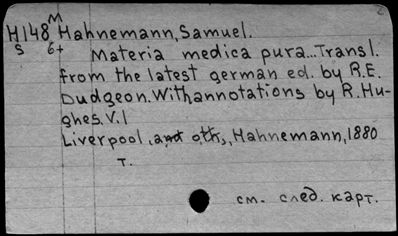 H148 M Hahnemann, Samuel.
s 6+ Materia medica pura...Transl.
from the latest german ed. by R.E.
Dudgeon. With annotations by R.Hu-
ghes. V.I
Liverpool, and oth., Hahnemann, 1880
т.
см. след. карт.